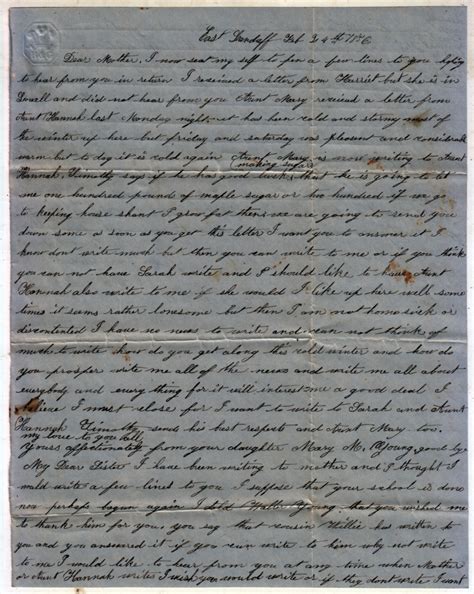 East Dandoff Feb
Dear Mother, I now seat my self to pen a few lines to you hoping
to hear from you in return I received a letter from Harriet but she is in
Lowell and did not hear from you Aunt Mary received a letter from
Aunt Hannah last Monday night it has been cold and stormy most of
the winter up here but friday and saturday was pleasant and considerable
warm but to day it is cold again Aunt Mary is now writing to Aunt
making sugar
Hannah, Timothy says if he has good luck that he is going to let
me one hundred pound of maple sugar or two hundred if we go
to keeping house shant I grow fat then we are going to send you
down some as soon as you get this letter I want you to answer it I
know dont write much but then you can write to me or if you think
you can not have Sarah write and I should like to have Aunt
Hannah also write to me if she would I like up here well some
times it seems rather lonesome but then I am not homesick or
discontented I have no news to write and can not think of
much to write how do you get along this cold winter and how do
you prosper write me all of the news and write me all about
everybody and every thing for it will interest me a good deal I
believe I must close for I want to write to Sarah and Aunt
Hannah Timothy sends his best respects and Aunt Mary too.
my love to you all
Yours affectionately from your daughter Mary M. Young, good by
My Dear Sister I have been writing to mother and I thought I
would write a few lines to you I suppose that your school is done
now perhaps begun again I told Willie Young that you wished me
to thank him for you, you say that cousin Willie has written to
you and you answered it if you can write to him why not write
to me I would like to hear from you at any time when Mother
or Aunt Hannah writes I wish you would write or if they dont write I want